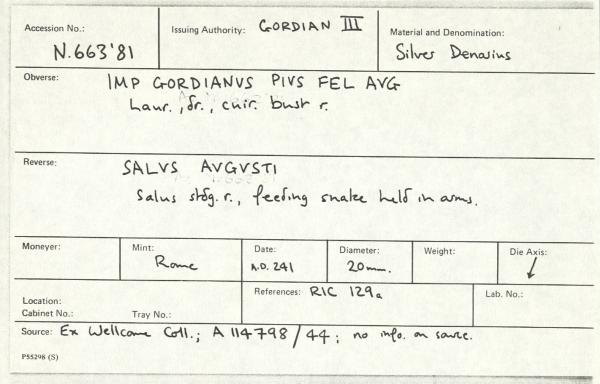 Accession No.: N.663'81
Issuing Authority: GORDIAN III
Material and Denomination: Silver Denarius
Obverse: IMP GORDIANVS PIVS FEL AVG
Laur., dr., cuir. bust r.
Reverse: SALVS AVGVSTI
Salus stdg. r., feeding snake held in arms.
Moneyer:
Mint: Rome
Date: A.D. 241
Diameter: 20mm.
Weight:
Die Axis: ↙
Location:
Cabinet No.: Tray No.:
References: RIC 129a
Lab. No.:
Source: Ex Wellcome Coll.; A 114798/44; no info. on source.
P55298 (S)